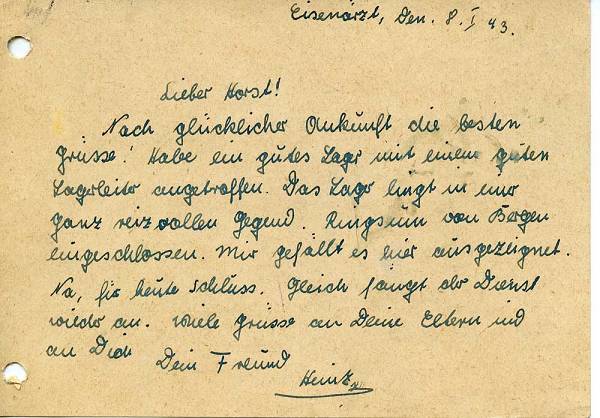 Eisenärzt, Den. 8. I 43.
Lieber Horst!
Nach glücklicher Ankunft die besten
Grüsse! Habe ein gutes Lager mit einem guten
Lagerleiter angetroffen. Das Lager liegt in einer
ganz reizvollen Gegend. Ringsum von Bergen
eingeschlossen. Mir gefällt es hier ausgezeignet.
Na, für heute Schluss. Gleich fangt der Dienst
wieder an. Viele Grüsse an Deine Eltern und
an Dich
Dein Freund
Heinz